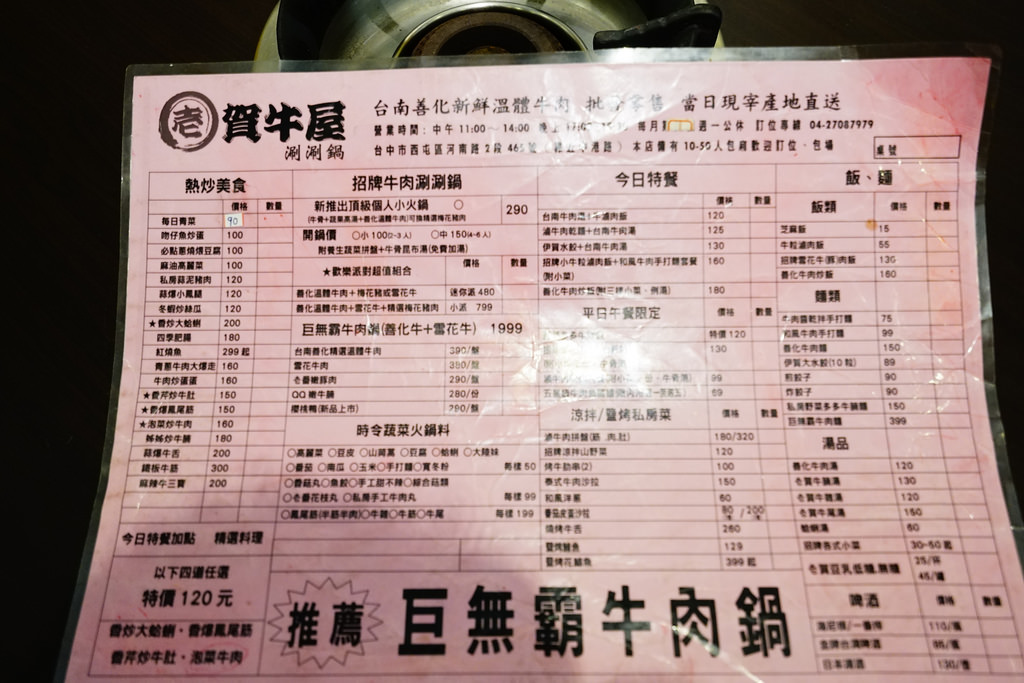 壱
賀牛屋
涮涮鍋
台南善化新鮮溫體牛肉 批 零售 當日現宰產地直送
營業時間：中午 11:00～14:00 晚上 每月 週一公休 訂位專線 04-27087979
台中市西屯區河南路2段 本店備有10-50人包廂歡迎訂位、包場
桌號
熱炒美食
價格 數量
每日青菜 90
吻仔魚炒蛋 100
必點蔥燒煨豆腐 100
麻油高麗菜 100
私房蒜泥豬肉 120
蒜爆小鳳腿 120
冬蝦炒絲瓜 120
★香炒大蛤蜊 200
四季肥腸 180
紅燒魚 299起
青蔥牛肉大爆走 160
牛肉炒蛋蛋 160
★香芹炒牛肚 150
★香爆鳳尾筋 150
★泡菜炒牛肉 160
姊姊炒牛腩 180
蒜爆牛舌 200
鐵板牛筋 300
麻辣牛三寶 200
今日特餐加點 精選料理
以下四道任選
特價120元
香炒大蛤蜊・香爆鳳尾筋
香芹炒牛肚・泡菜牛肉
招牌牛肉涮涮鍋
新推出頂級個人小火鍋 ○ 290
(牛骨+蔬果高湯+善化溫體牛肉)可換精選梅花豬肉
開鍋價 ○小100(2-3人) ○中150(4-6人)
附養生蔬菜拼盤+牛骨昆布湯(免費加湯)
★歡樂派對超值組合 價格 數量
善化溫體牛肉+梅花豬或雪花牛 迷你派 480
善化溫體牛肉+雪花牛+精選梅花豬肉 小派 799
巨無霸牛肉鍋(善化牛+雪花牛) 1999
台南善化精選溫體牛肉 390/盤
雪花牛肉 350/盤
壱番嫩豚肉 290/盤
QQ嫩牛腩 280/份
櫻桃鴨(新品上市) 290/盤
時令蔬菜火鍋料
○高麗菜 ○豆皮 ○山茼蒿 ○豆腐 ○蛤蜊 ○大陸妹
○番茄 ○南瓜 ○玉米 ○手打麵 ○寬冬粉 每樣50
○香菇丸 ○魚餃 ○手工甜不辣 ○綜合菇類
○壱番花枝丸 ○私房手工牛肉丸 每樣99
○鳳尾筋(半筋半肉) ○牛雜 ○牛筋 ○牛尾 每樣199
推薦 巨無霸牛肉鍋
今日特餐
價格 數量
120
滷牛肉乾麵+台南牛肉湯 125
伊賀水餃+台南牛肉湯 130
招牌小牛粒滷肉飯+和風牛肉手打麵套餐 160
(附小菜)
180
平日午餐限定 價格 數量
特價120
130
99
69
涼拌/鹽烤私房菜 價格 數量
滷牛肉拼盤(筋.肉.肚) 180/320
招牌涼拌山野菜 120
烤牛肋串(2) 100
泰式牛肉沙拉 150
和風洋蔥 60
番茄皮蛋沙拉
燒烤牛舌 260
鹽烤鯖魚 129
鹽烤花鯽魚 399起
飯、麵
飯類 價格 數量
芝麻飯 15
牛粒滷肉飯 55
招牌雪花牛(豚)肉飯 130
善化牛肉炒飯 160
麵類
牛肉醬乾拌手打麵 75
和風牛肉手打麵 99
善化牛肉麵 150
伊賀大水餃(10粒) 89
煎餃子 90
炸餃子 90
私房野菜多多牛腩麵 150
巨無霸牛肉麵 399
湯品
善化牛肉湯 120
壱賀牛腩湯 130
壱賀牛雜湯 120
壱賀牛尾湯 150
蛤蜊湯 60
招牌各式小菜 30-50起
壱賀豆乳低糖.無糖 25/杯
45/瓶
啤酒 價格 數量
海尼根/一番搾 110/瓶
金牌台灣啤酒
日本清酒 130/瓶